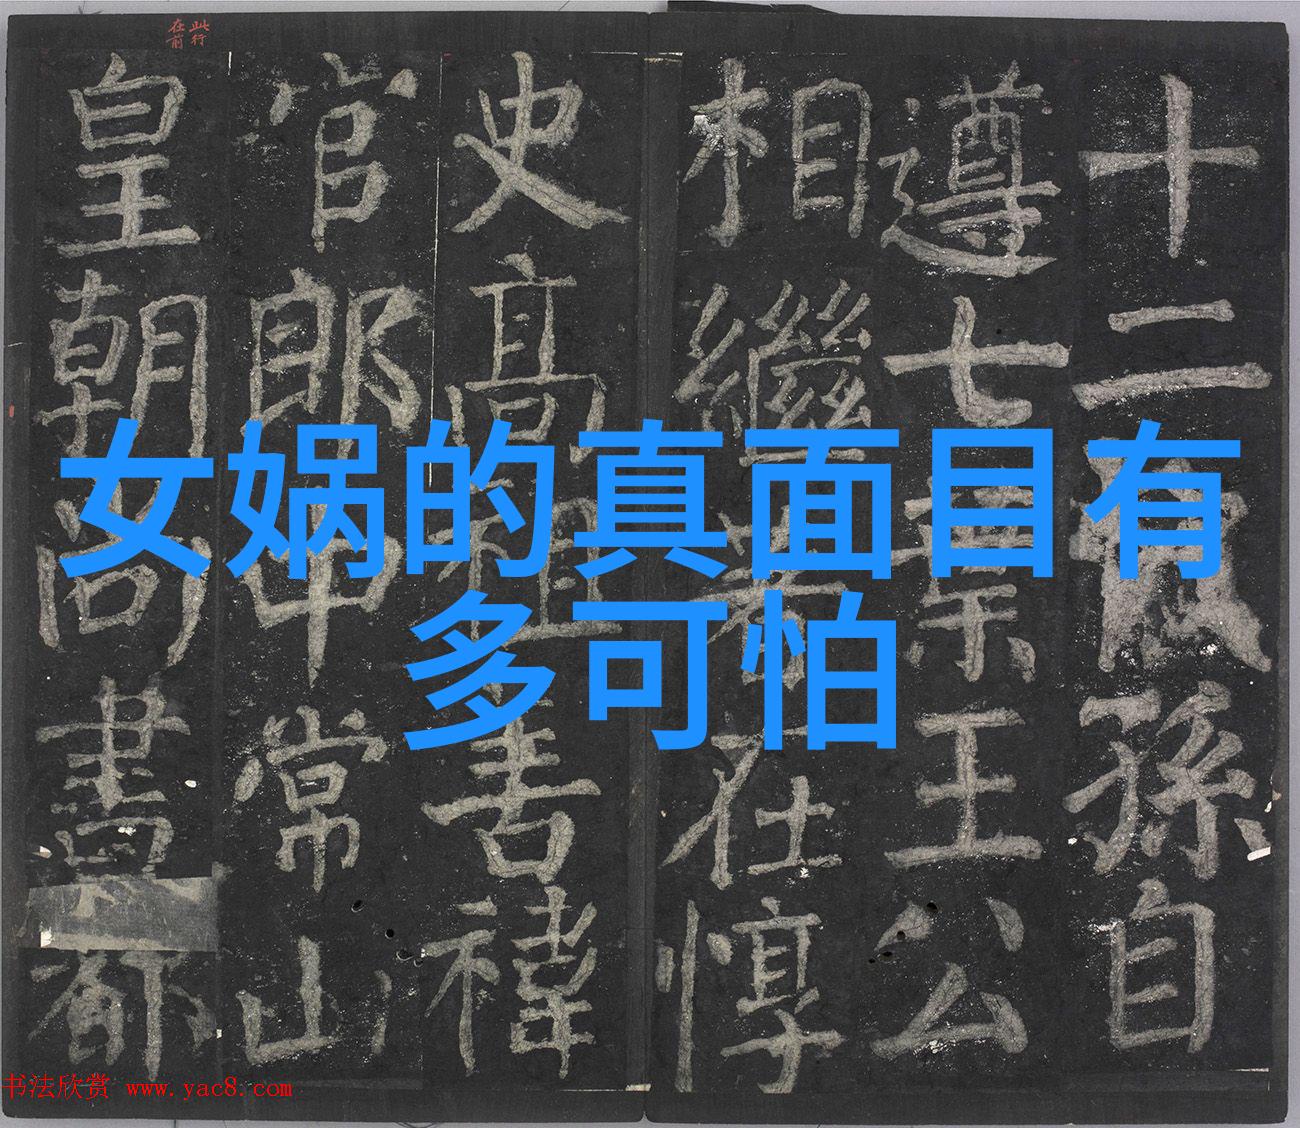 此行
在前
十二
孫自
遵七葉王公
相繼
在惇
史高祖
書禕
官郎中常山
皇朝尚書都
女娲的真面目有
多可怕
书法欣赏 www.yac8.com